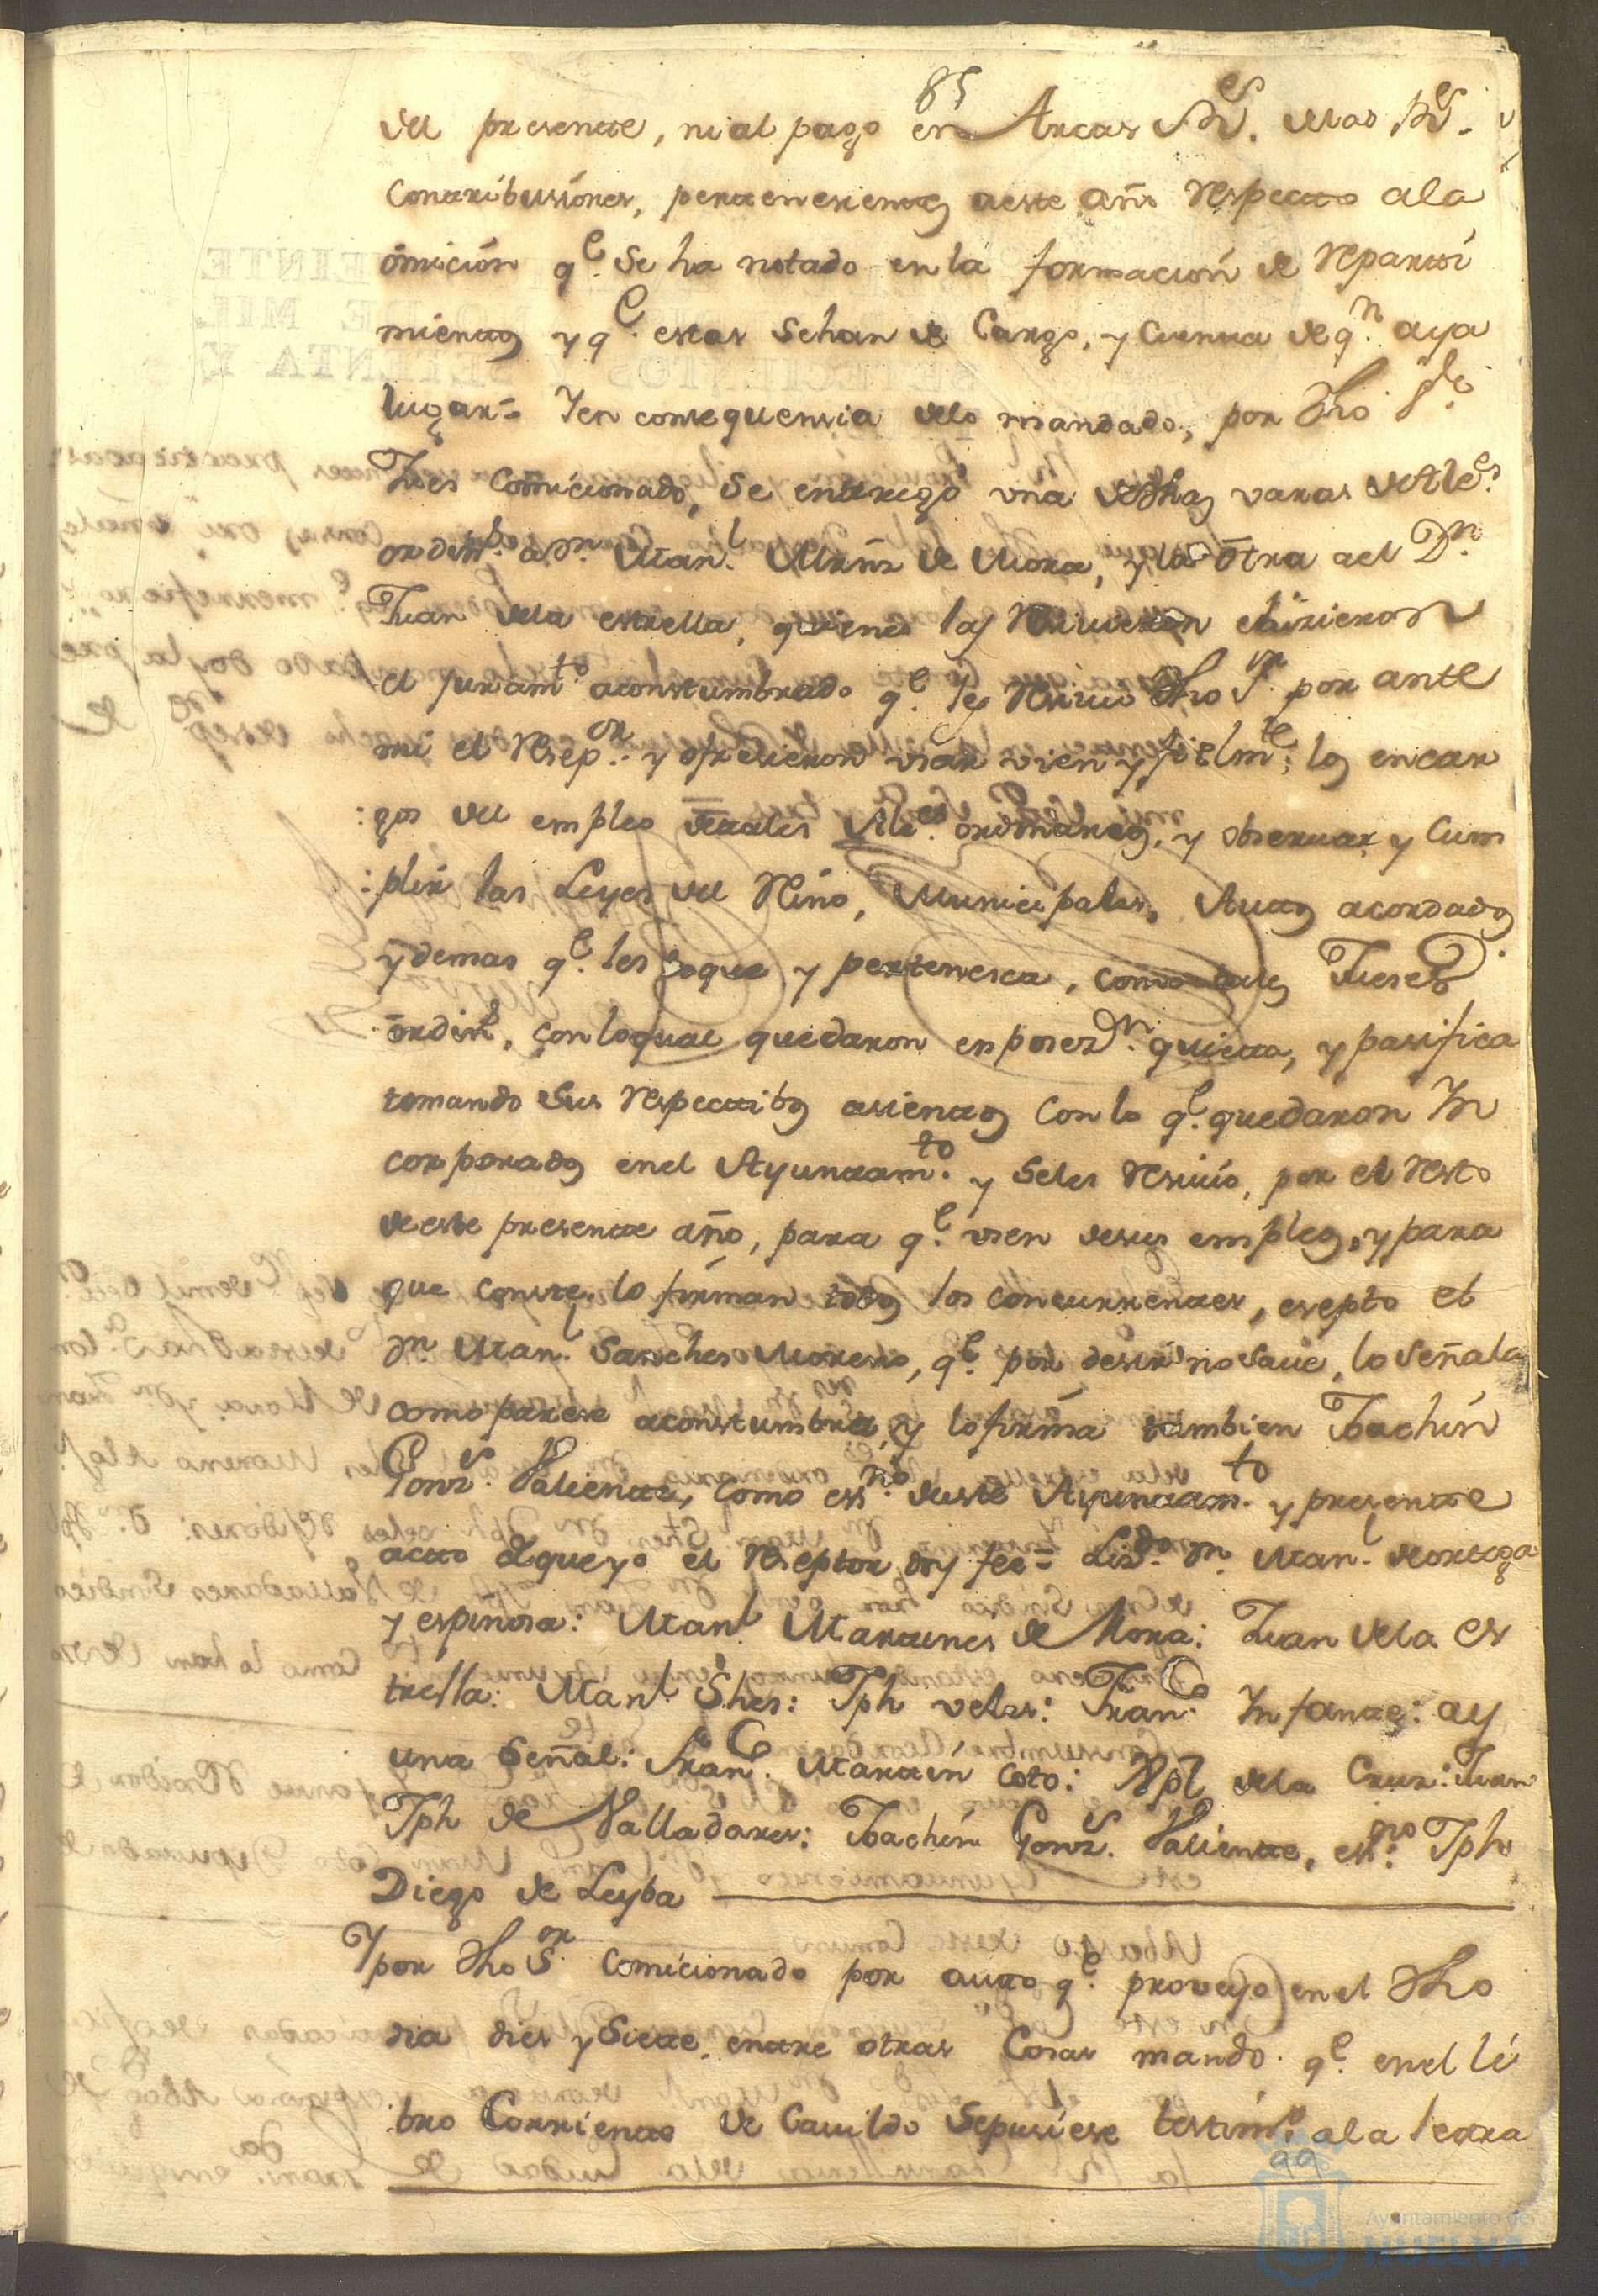 85
del presente, ni al pago en Arcas R.s delas R.s
Contribusiones, pertenesientes aeste año respecto ala
ómición q.e se ha notado en la formación de repartí
mientos y q.e estas sehan de Cargo, y Cuenta de q.n aya
lugar= Y en consequensia delo mandado, por dho S.r
Jues Comicionado, se entregó una de dhas varas de Ale.s
ordin.s a d.n Man.l Mrñz de Mora, y la ótra ael D.n
Juan dela estrella, quienes las resiuieron e hizieron
el juram.to acostumbrado q.e les resiuió dho S.or por ante
mi el resep.or y ofresieron usar vien y fielm.te los encar
:gos del empleo de tales Ale.s ordinarios, y obseruar y cum
:plir las Leyes del Reino, Municipales, Autos acordados
y demas q.e les toque y pertenesca, como tales Jueses
órdin.s, con loqual quedaron en poses.n quieta, y pasifica
tomando sus respectibos asientos con lo q.e quedaron In
corporados en el Ayuntam.to y seles resiuió, por el resto
de este presente año, para q.e usen de sus empleos, y para
que conste lo firman todos los concurrentes, esepto el
d.n Man.l Sanches Moreno, q.e por desir no saue, lo señala
como parese acostumbra, y lo firma tambien Joachín
Gonz.s Valiente, como ess.no deeste Ayuntam.to y presente
acto de que yo el reseptor doy fee= Liz.do d.n Man.l de ortega
y espinosa: Man.l Martines de Mora: Juan dela es
trella: Man.l Shes: Jph veles: Fran.co Infante: ay
una Señal: Fran.co Martín Coto: dela Cruz: Juan
Jph de Valladares: Joachín Gonz.s Valiente, ess.no Jph
Diego de Leyba
Y por dho S.or Comicionado por auto q.e proveyó en el dho
dia dies y Siete, entre otras Cosas mandó q.e en el lí
bro Corriente de Cauildo sepusiese testim.o ala letra
99
Ayuntamiento de
HUELVA